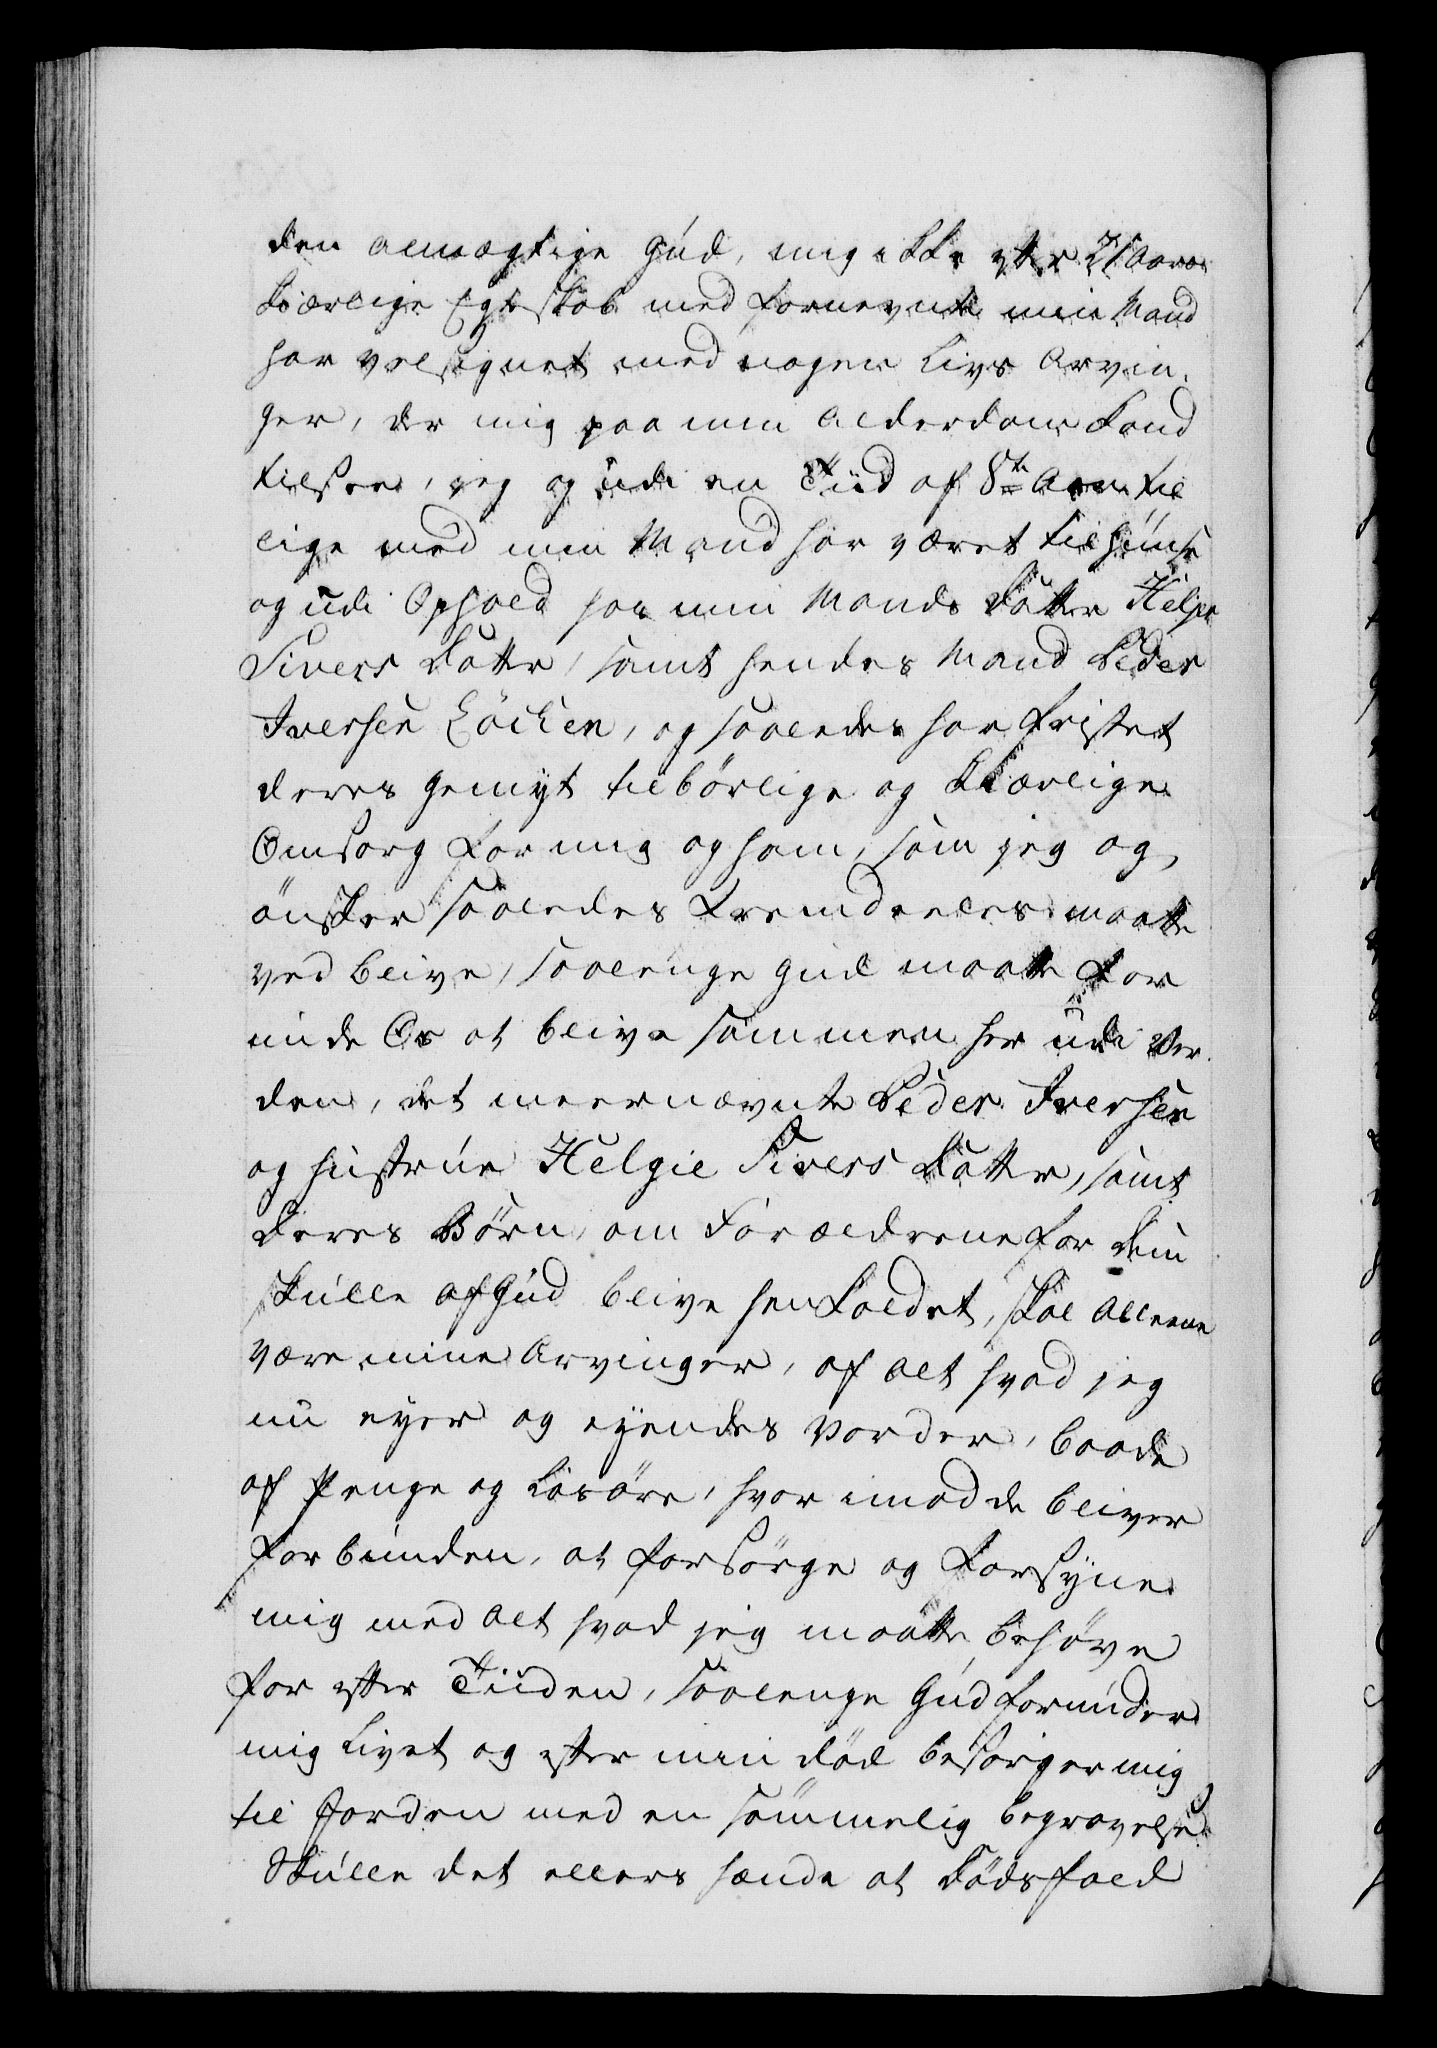 den almægtige Gud, mig ikke efter 21 Aars
kierlige Egteskab med fornevnte min Mand
har velsignet med nogen Livs Arvin-
ger, der mig paa min Alderdom kand
tilsee, jeg og udi en Tiid af 8te Aar til
lige med min Mand har været til Huuse
og udi Ophold hos min Mands Datter Helje
Sivers Datter, samt hendes Mand Peder
Iversen Löcken, og saaledes har fristet
deres Gemyt tilbørlige og kierlige
Omsorg for mig og ham, som jeg og,
ønsker saaledes fremdeeles maatte
ved blive, saalenge Gud maatte for
unde Os at blive sammen her udi Ver
den, det meernævnte Peder Iversen
og Hustrue Helgie Sivers Datter, samt
deres Børn, om Forældrene for dem
skulle af Gud blive henkaldet, skal alleene
være mine Arvinger, af alt hvad jeg
nu eyer og eyendes vorder, baade
af Penge og Løsøre, hvor imod de bliver
forbunden, at forsørge og forsyne
mig med alt hvad jeg maatte behøve
for efter Tiiden, saalenge Gud forunder
mig Livet og efter min død besørger mig
til Jorden med en sømmelig Begravelse.
Skulle det ellers hænde at Dødsfald